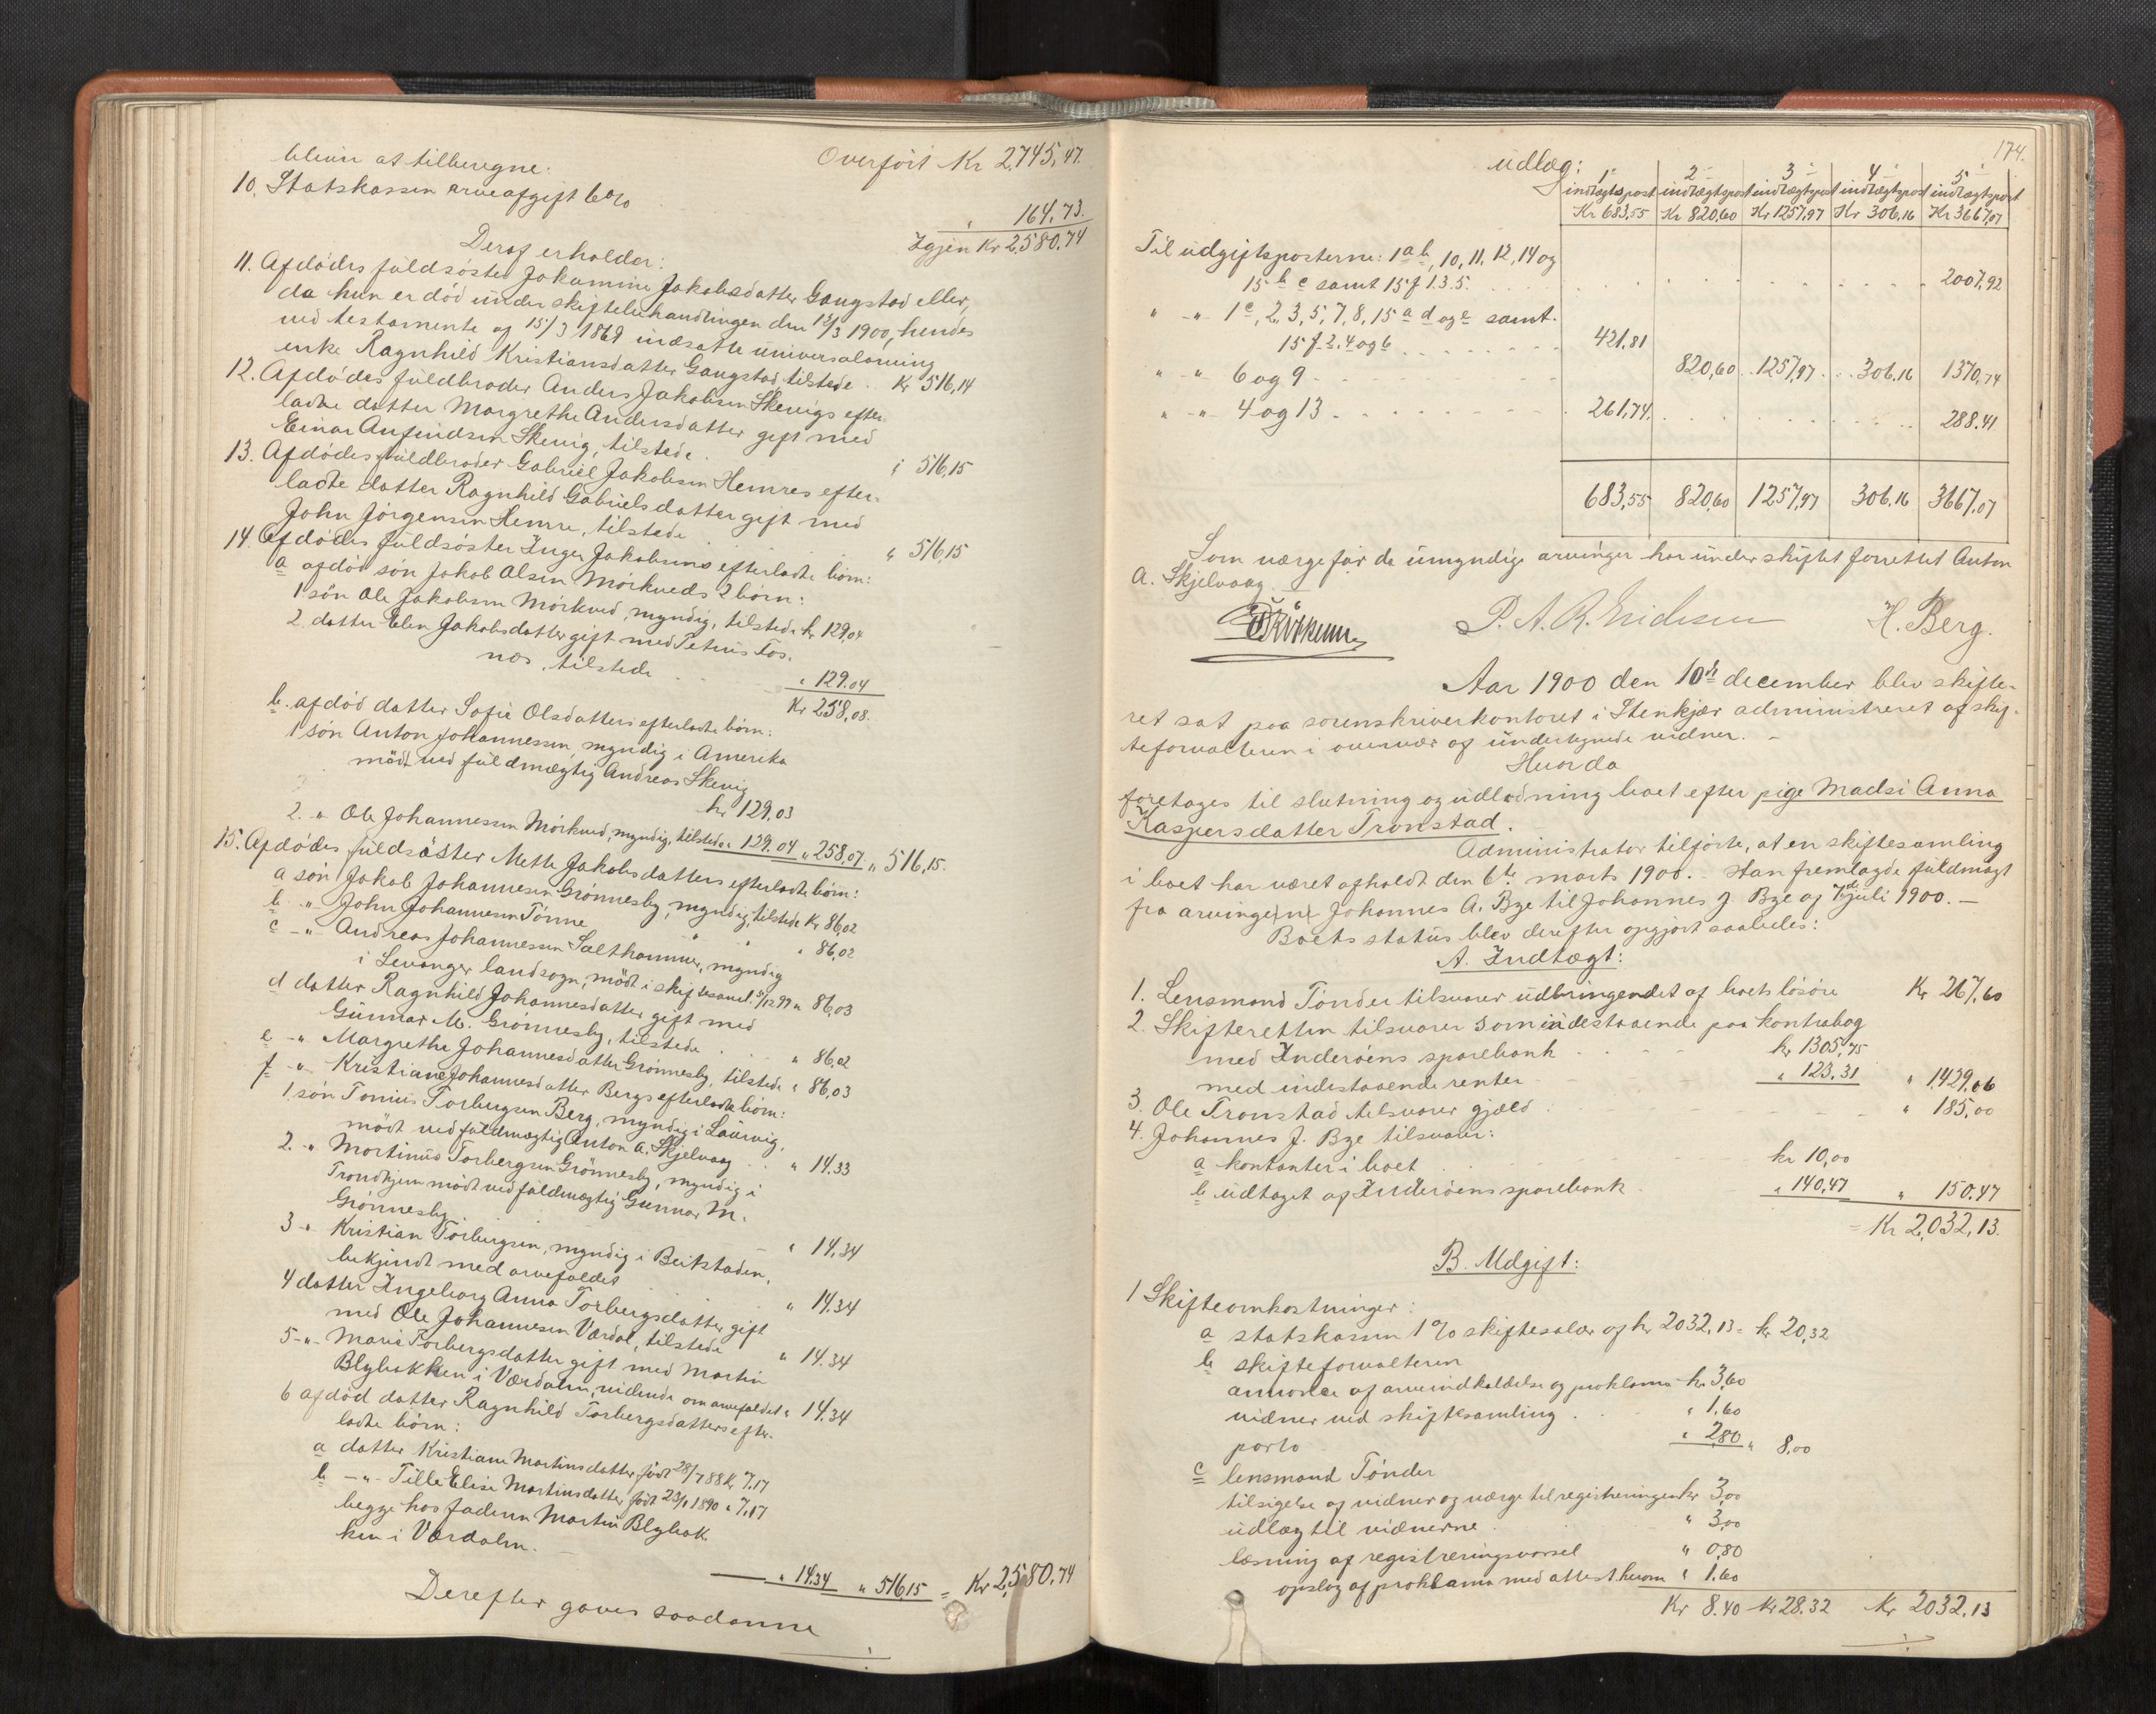 Overført Kr 2745,47.
bliver at tilberegne:
10. Statskassen arveafgift 6% " 164,73.
Igjen Kr 2,580,74
Deraf erholder:
11. Afdødes fuldsøster Jokumine Jakobsdatter Gangstad eller,
da hun er død under skiftebehandlingen den 12/3 1900, hendes
ved testamente af 15/3 1869 indsatte universalarving
enke Ragnhild Kristiansdatter Gangstad, tilstede . Kr 516,14
12. Afdødes fuldbroder Anders Jakobsen Skevigs efter-
ladte datter Margrethe Andersdatter gift med
Einar Anfindsen Skevig, tilstede . " 516,15
13. Afdødes fuldbroder Gabriel Jakobsen Hemres efter-
ladte datter Ragnhild Gabrielsdatter gift med
John Jørgensen Hemre, tilstede . " 516,15
14. Afdødes fuldsøster Inger Jakobsens efterladte børn:
a afdød søn Jakob Olsen Mørkveds 2 børn:
1 søn Ole Jakobsen Mørkved, myndig, tilstede kr 129,04
2. datter Elen Jakobsdatter gift med Petrus Fos-
nes, tilstede " 129.04
Kr 258,08.
b. afdød datter Sofie Olsdatters efterladte børn:
1 søn Anton Johannessen, myndig i Amerika
mødt ved fuldmægtig Andreas Skevig
kr 129,03
2. " Ole Johannessen Mørkved, myndig, tilstede " 129.04 " 258,07 " 516,15.
15. Afdødes fuldsøster Mette Jakobsdatters efterladte børn:
a søn Jakob Johannesen Grønnesby, myndig, tilstede Kr 86,02
b " John Johannesen Tønne " " " 86,02
c -" Andreas Johannessen Salthammer, myndig
i Levanger landsogn, mødt i skiftesaml. 5/12 99 " 86,03
d datter Ragnhild Johannesdatter gift med
Gunnar M. Grønnesby, tilstede . . " 86,02
e -" Margrethe Johannesdatter Grønnesby, tilstede " 86,03
f -" Kristiane Johannesdatter Bergs efterladte børn:
1 søn Tonius Torbergsen Berg, myndig i Laurvig,
mødt ved fuldmægtig Anton A. Skjelvaag . . " 14.33
2. -" Martinus Torbergsen Grønnesby, myndig i
Trondhjem mødt ved fuldmægtig Gunnar M.
Grønnesby . " 14.34
3 -" Kristian Torbergsen, myndig i Beitstaden,
bekjendt med arvefaldet " 14.34
4 datter Ingeborg Anna Torbergsdatter gift
med Ole Johannesen Værdal, tilstede " 14.34
5 -"- Maria Torbergsdatter gift med Martin
Blybakken i Værdalen, vidende om arvefaldet " 14.34
6 afdød datter Ragnhild Torbergsdatters efter-
ladte børn:
a datter Kristiane Martinsdatter, født 28/7 88 kr 7.17
b -"- Tille Elise Martinsdatter, født 23/1 1890 " 7,17
begge hos faderen Martin Blybak-
ken i Værdalen.
" 14.34 " 516,15 = Kr 2,580.74
Derefter gaves saadanne
174.
udlæg:
1ste indtægtspost Kr 683,55
2 indtægtspost Kr 820,60
3 indtægtspost Kr 1257,97
4 indtægtspost Kr 306.16
5 indtægtspost Kr 3667,07
Til udgiftsposterne: 1 a b, 10, 11, 12, 14 og
15 b c samt 15 f 1.3.5. 2007,92
" -"- 1 c, 2, 3, 5, 7, 8, 15 a d og e samt
15 f 2. 4 og 6 421,81
" -"- 6 og 9 820,60 1257,97 306.16 1370,74
" -"- 4 og 13 261,74. 288.41
683,55 820,60 1257,97 306.16 3667.07
Som værge for de umyndige arvinger har under skiftet forrettet Anton
A. Skjelvaag.
H. Berg.
Aar 1900 den 10de december blev skifte-
ret sat paa sorenskriverkontoret i Stenkjær administreret af skif-
teforvalteren i overvær af undertegnede vidner. -
Hvorda
foretages til slutning og udlodning boet efter pige Madsi Anna
Kaspersdatter Tronstad.
Administrator tilførte, at en skiftesamling
i boet har været afholdt den 6te marts 1900. - Han fremlagde fuldmagt
fra arvingene Johannes A. Bye til Johannes J. Bye af 7de juli 1900. -
Boets status blev derefter opgjort saaledes:
A. Indtægt:
1. Lensmand Tønder tilsvarer udbringendet af boets løsøre Kr 267,60
2. Skifteretten tilsvarer som indestaaende paa kontrabog
med Inderøens sparebank kr 1305,75
med indestaaende renter " 123.31 " 1429,06
3. Ole Tronstad tilsvarer gjæld " 185,00
4. Johannes J. Bye tilsvarer:
a kontanter i boet kr 10,00
b udtaget af Inderøens sparebank " 140,47 " 150.47
= Kr 2,032,13.
B. Udgift:
1 Skifteomkostninger:
a statskassen 1% skiftesalær af kr 2032,13 = kr 20,32
b skifteforvalteren
annonce af arveindkaldelse og proklama kr 3,60
vidner ved skiftesamling . " 1.60
porto " 2,80 " 8,00
c lensmand Tønder
tilsigelse af vidner og værge til registreringen kr 3,00
udlæg til vidnerne " 3,00
læsning af registreringsvarsel " 0,80
opslag af proklama med attest herom " 1.60
Kr 8.40 Kr 28.32 Kr 2032,13